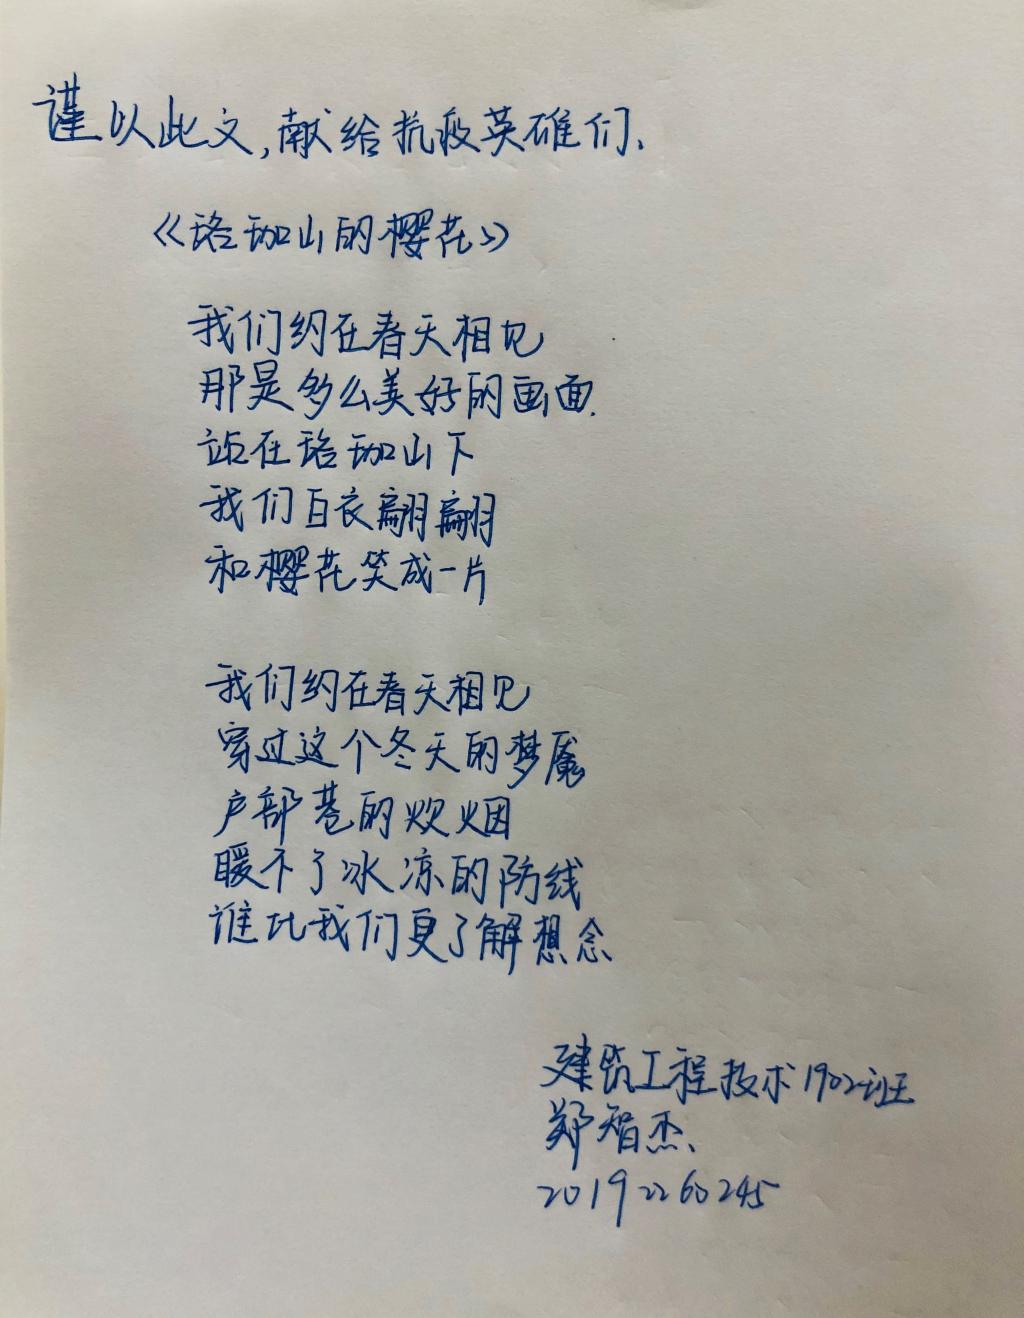 谨以此文,献给抗疫英雄们、
《珞珈山的樱花》
我们约在春天相见
那是多么美好的画面.
站在珞珈山下
我们白衣翩翩
和樱花笑成一片
我们约在春天相见
穿过这个冬天的梦魇
户部巷的炊烟
暖不了冰凉的防线
谁比我们更了解想念
建筑工程技术1902班
郑智杰、
20192260245